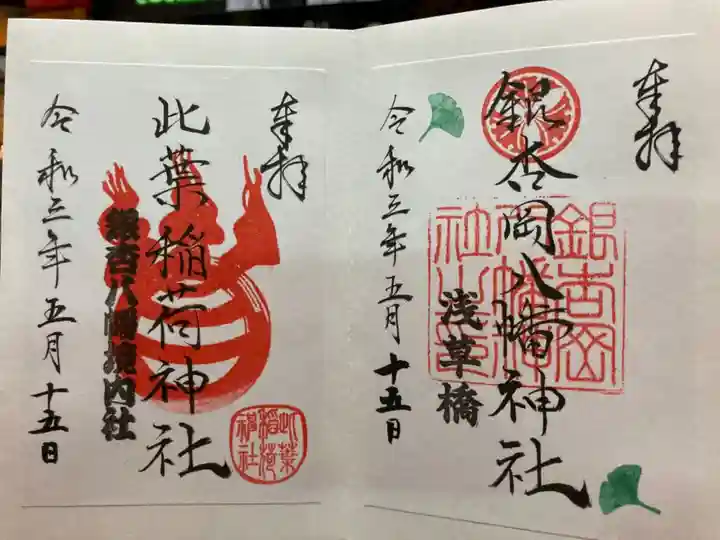 奉拝
銀杏岡八幡神社
浅草橋
令和三年五月十五日
銀杏岡八幡神社之印
奉拝
此葉稲荷神社
銀杏八幡境内社
令和三年五月十五日
此葉稲荷神社